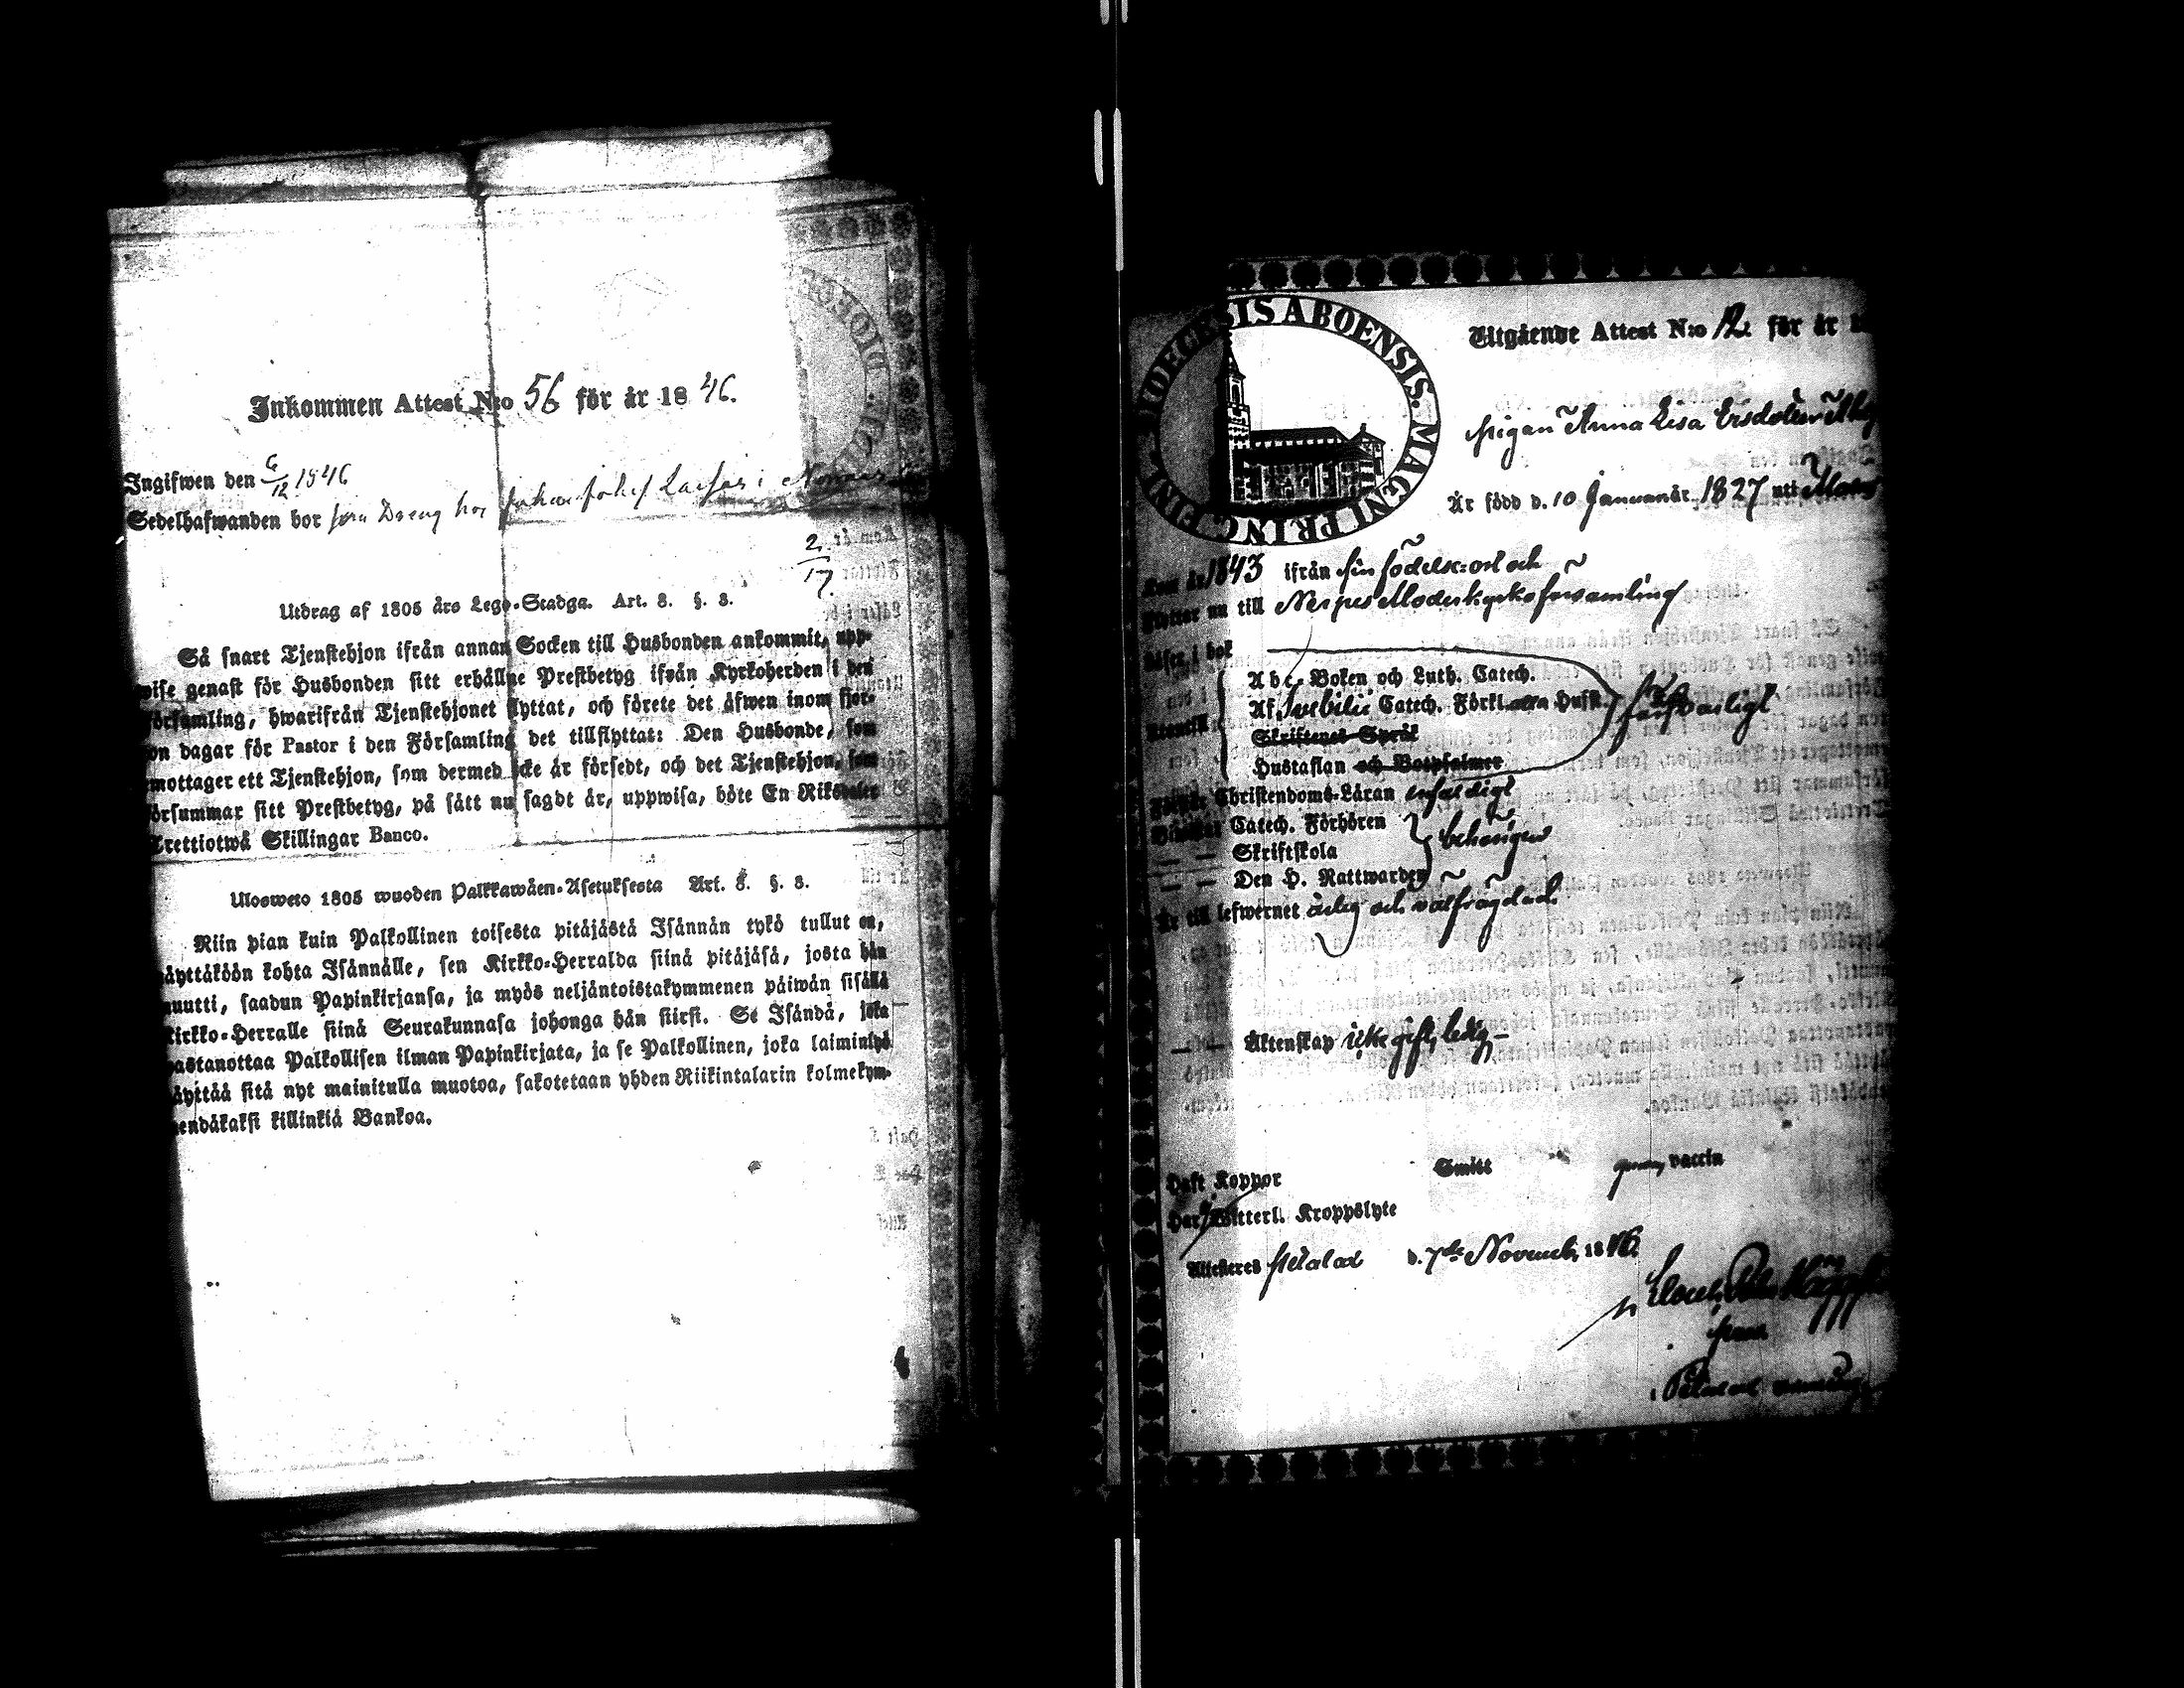 Inkommen Attest N:o 56 för år 1846.
Ingifwen den 6/12 1846
Sedelhafwanden bor som Dreng hos Johan Johes Larsas i
2/17
Utdrag af 1805 års Lego-Stadga. Art. 8. §. 3.
Så snart Tjenstehjon ifrån annan Socken till Husbonden ankommit, upp-
wise genast för Husbonden sitt erhållne Prestbetyg ifrån Kyrkoherden i den
Församling, hwarifrån Tjenstehjonet flyttat, och förete det äfwen inom fjor-
ton dagar för Pastor i den Församling det tillflyttat: Den Husbonde, som
emottager ett Tjenstehjon, som dermed icke är försedt, och det Tjenstehjon, som
försummar sitt Prestbetyg, på sätt nu sagdt är, uppwisa, böte En Riksdaler
Trettiotwå Skillingar Banco.
Ulosweto 1805 wuoden Palkkawäen-Asetuksesta Art. 8. §. 3.
Niin pian kuin Palkollinen toisesta pitäjästä Isännän tykö tullut on,
näyttäköön kohta Isännälle, sen Kirkko-Herralda siinä pitäjäsä, josta hän
muutti, saadun Papinkirjansa, ja myös neljäntoistakymmenen päiwän sisällä
Kirkko-Herralle siinä Seurakunnasa johonga hän siirst. Se Isändä, joka
wastanottaa Palkollisen ilman Papinkirjata, ja se Palkollinen, joka laiminlyö
näyttää sitä nyt mainitulla muotoa, sakotetaan yhden Riikintalarin kolmekym-
mendäkaksi killinkiä Bankoa.
DIOECESIS ABOENSIS. MAGNI PRINC. FINL.
Utgående Attest N:o 12 för år
pigan Anna Lisa Ersdotter
Är född d. 10 Januari år 1827 uti
Kom år 1843 ifrån sin födelse-ort och
Flyttar nu till Nerpes Moderkyrkoförsamling
Läser i bok
Abc-Boken och Luth. Catech.
Af Svebilii Catech. Förkl. Hust. försvarligt
Skriftenes Språk
Hustaflan och Botpsalmer
Christendoms-Läran enfaldigt
Catech. Förhören
— — Skriftskola behörigen
— — Den H. Nattwarden
Är till lefwernet ärlig och välfrägdad.
— — Äktenskap icke gift, ledig –
Haft Koppor Smitt vaccin
Har Witterl. Kroppslyte
Attesteres Petalax d. 7de Novemb. 1846.